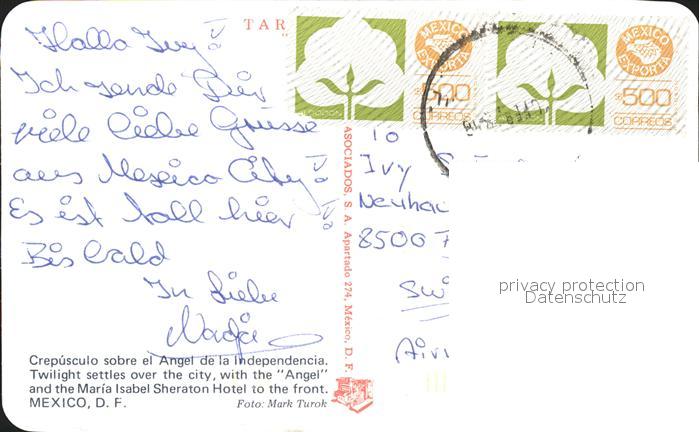 Hallo Ivy!
Ich sende Dir
viele liebe Grüsse
aus Mexico City!
Es ist toll hier!
Bis bald
In Liebe
Nadja
Crepúsculo sobre el Angel de la Independencia.
Twilight settles over the city, with the "Angel"
and the María Isabel Sheraton Hotel to the front.
MEXICO, D. F. Foto: Mark Turok
TAR
ASOCIADOS, S. A. Apartado 274, México, D. F.
MEXICO
EXPORTA
$500
CORREOS
MEXICO
EXPORTA
$500
CORREOS
To
Ivy
Neuhau
8500 F
Swi
Airm
privacy protection
Datenschutz